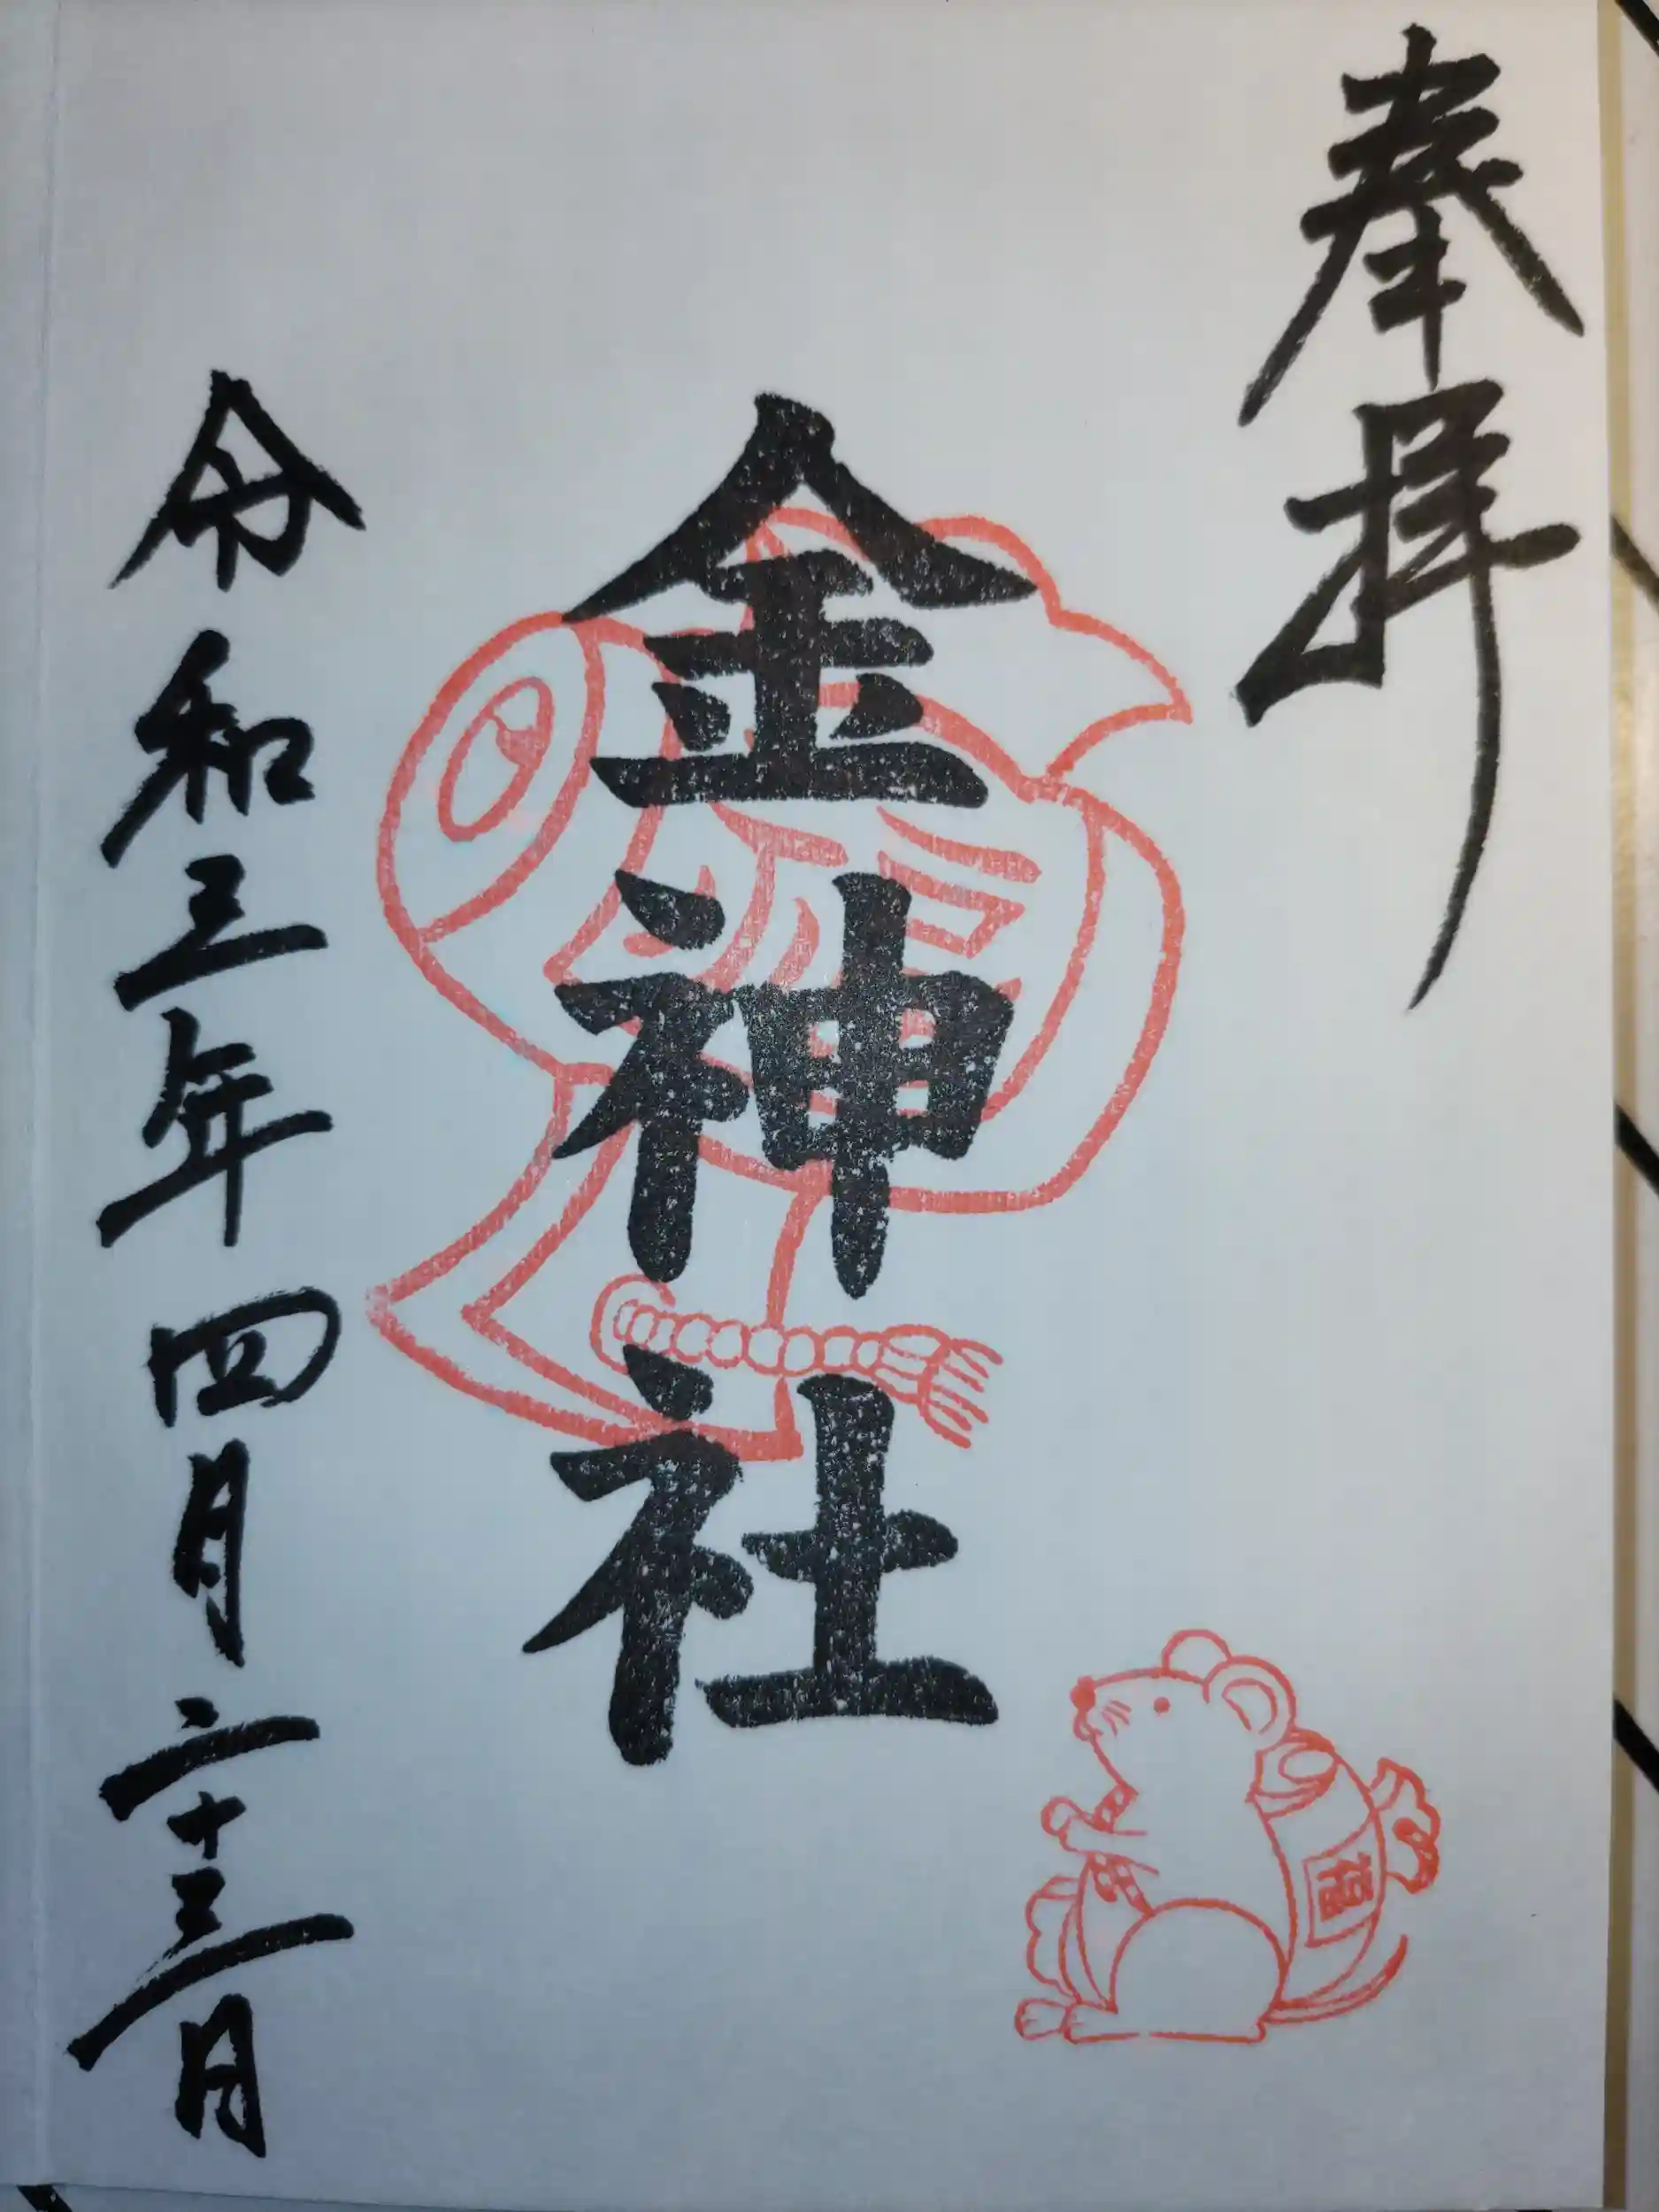 奉拝
金神社
令和三年四月二十三日
福